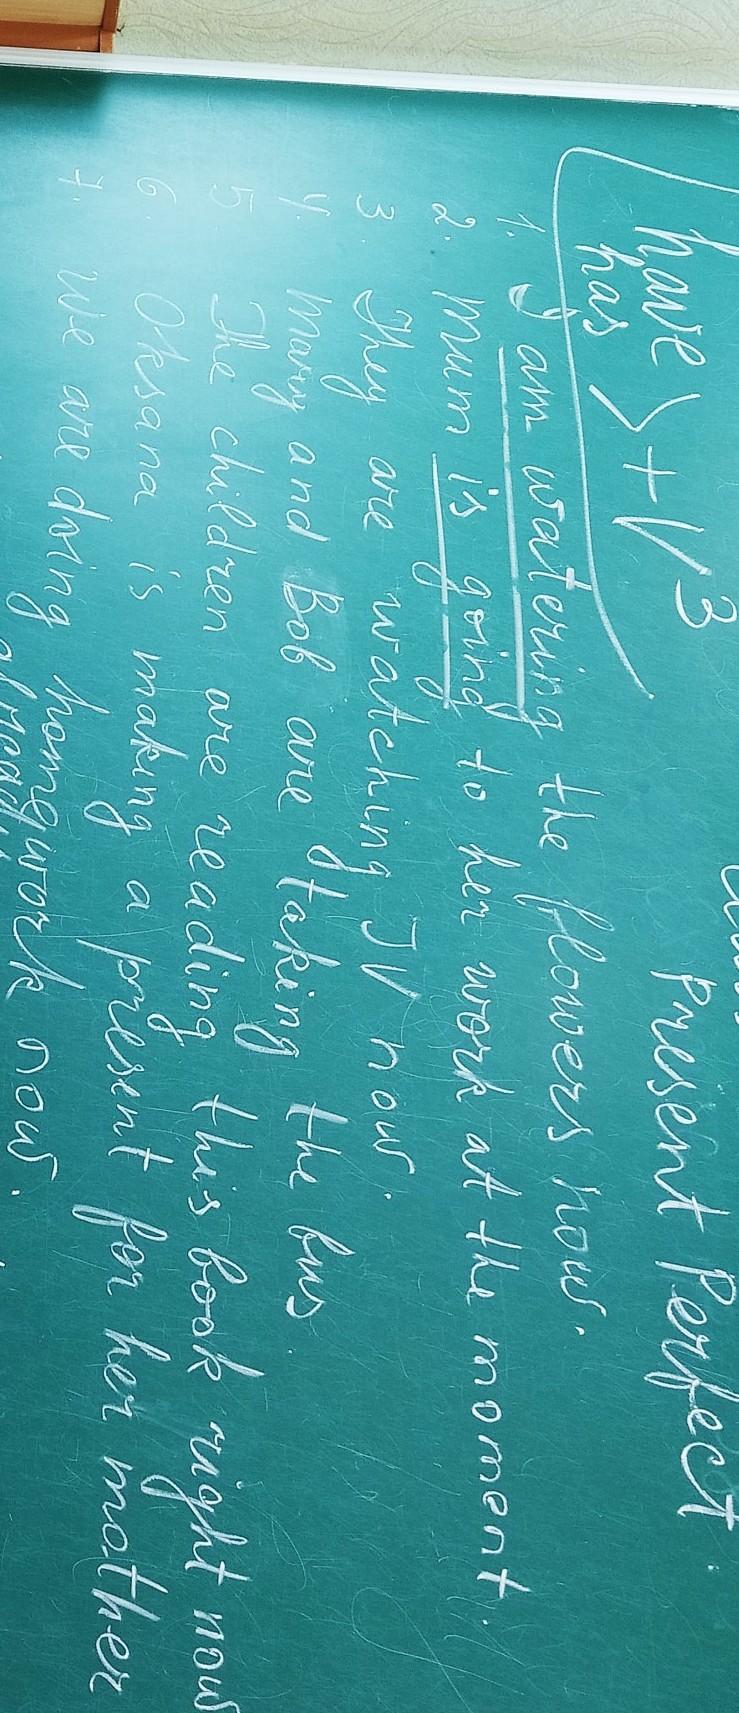 Present Perfect.
have
has > + V3
1. I am watering the flowers now.
2. Mum is going to her work at the moment.
3. They are watching TV now.
4. Mary and Bob are taking the bus.
5 The children are reading this book right now
6. Oksana is making a present for her mother
7. We are doing homework now.
already